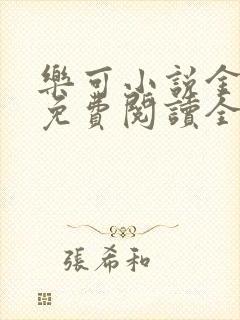 樂可小說全
免費閱讀全
張希和